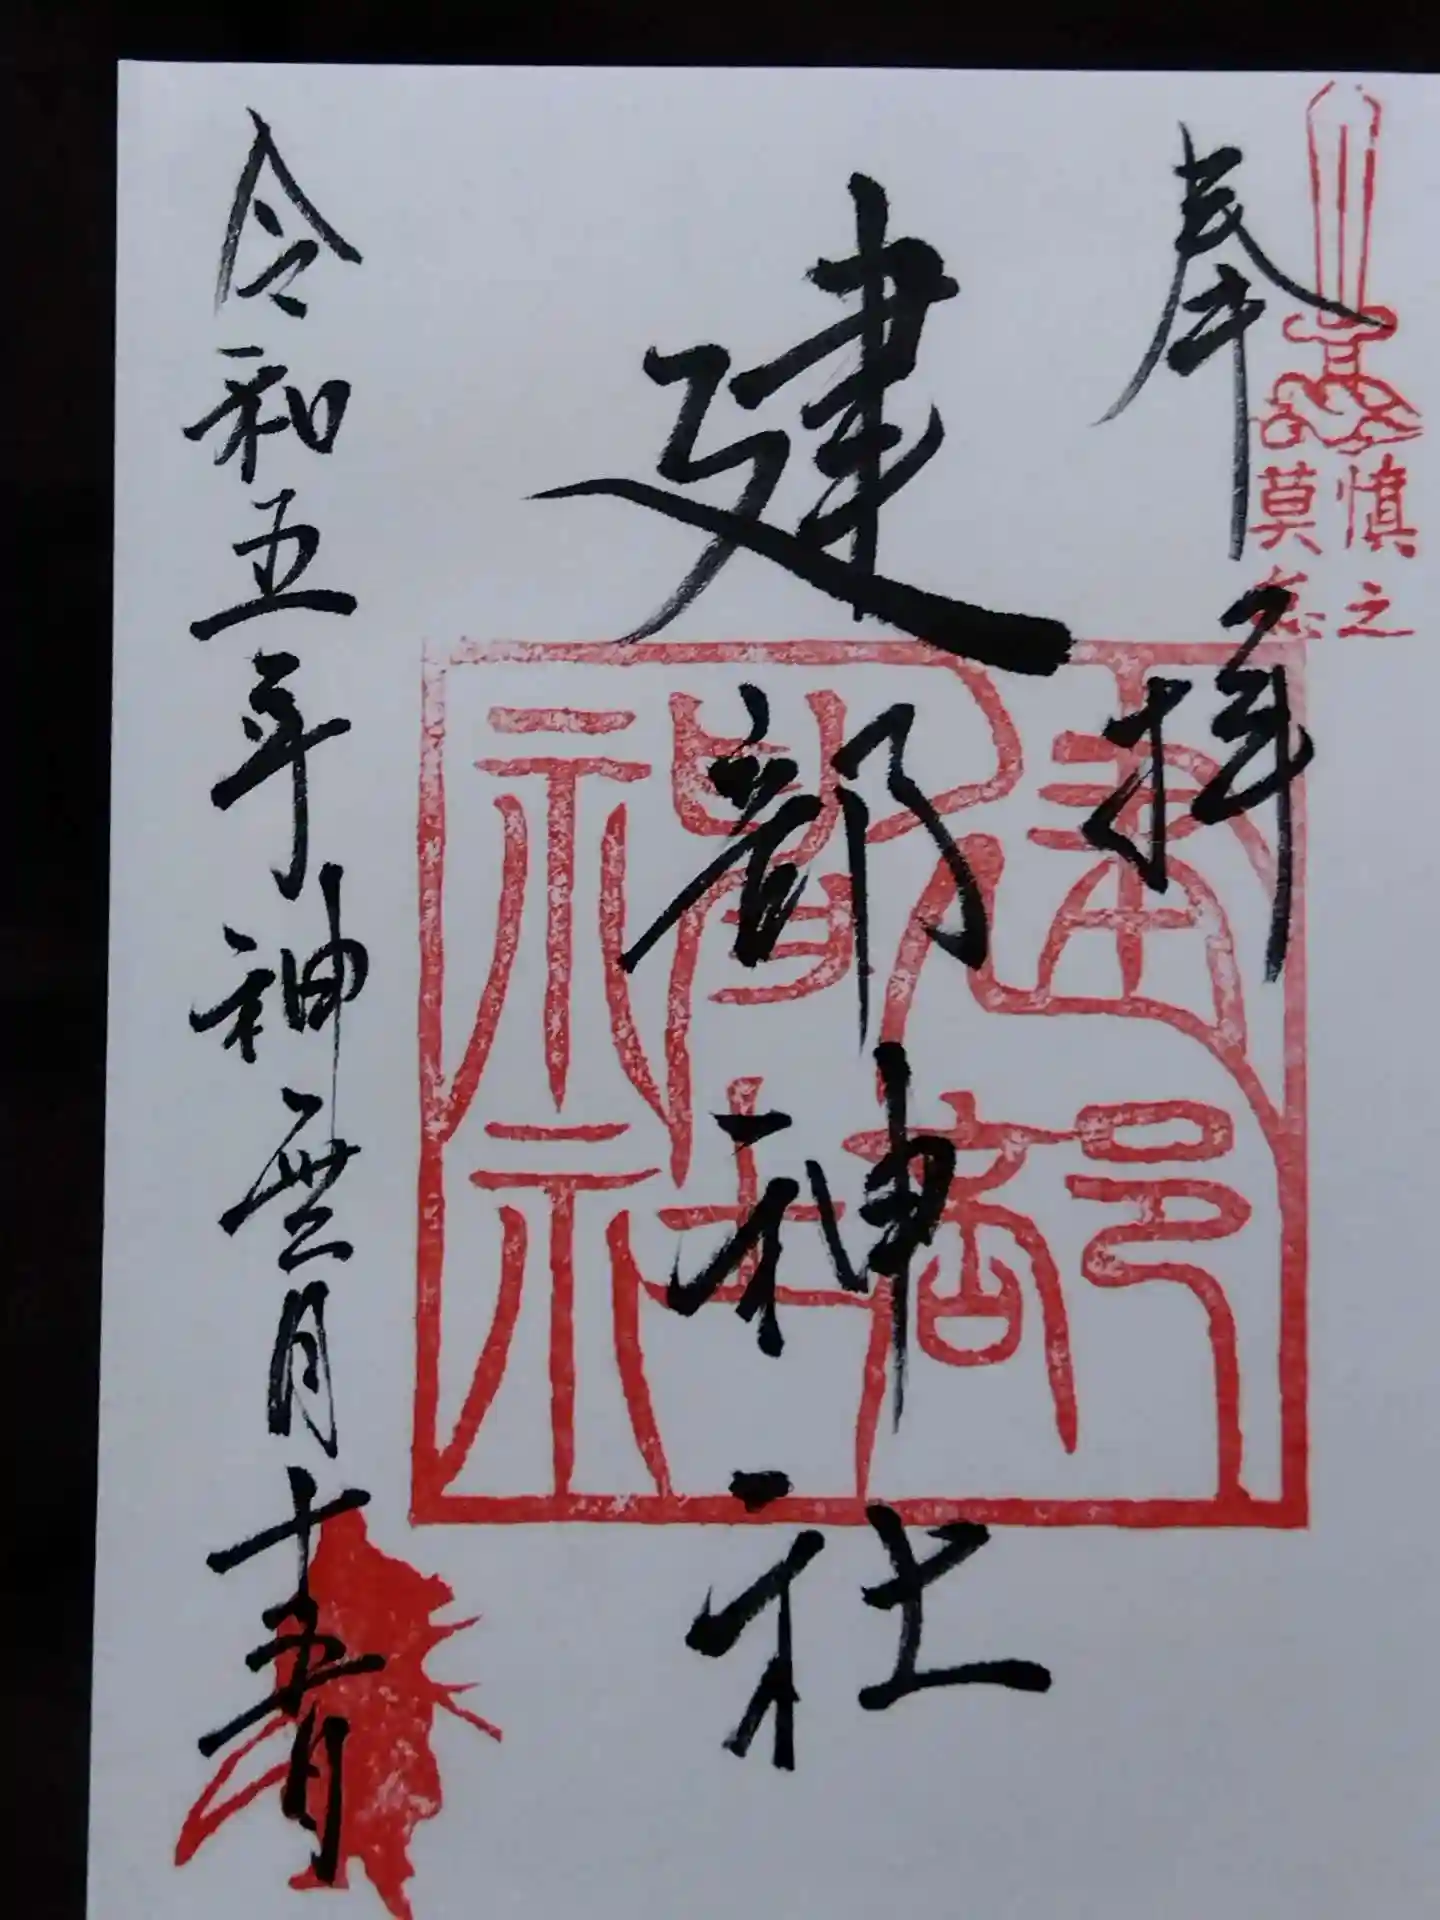 慎之
莫怠
奉拝
建部神社
建部神社
令和五年神無月十五日